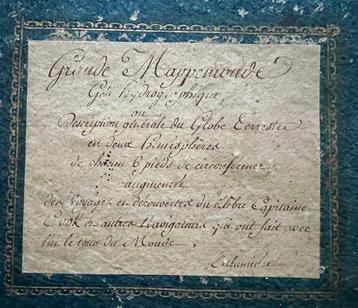 Grande Mappemonde
Géo hydrographique
ou
Description générale du Globe Terrestre
en deux hémisphères
de chacun 6 pieds de circonference,
augmentée
des Voyages et découvertes du célèbre Capitaine
Cook et autres Navigateurs qui ont fait avec
lui le tour du Monde.